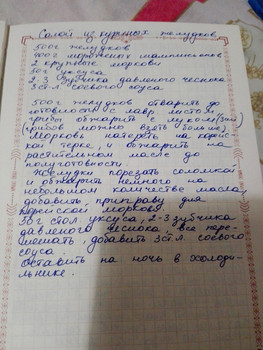 Салат из куриных желудков
500г желудков
400г мороженых шампиньонов
2 крупные моркови
50г уксуса
2-3 зубчика давленого чеснока
3 ст л соевого соуса
500г желудков отварить до
готовности с лавр. листом
грибы обжарить с луком (3шт)
(грибов можно взять больше)
Морковь натереть на корейс-
кой терке, и обжарить на
растительном масле до
полуготовности.
Желудки порезать соломкой
и обжарить немного на
небольшом количестве масла,
добавить приправу для
корейской моркови.
50г стол уксуса, 2-3 зубчика
давленого чеснока, все пере-
мешать, добавить 3 ст л соевого
соуса.
Оставить на ночь в холоди-
льнике.